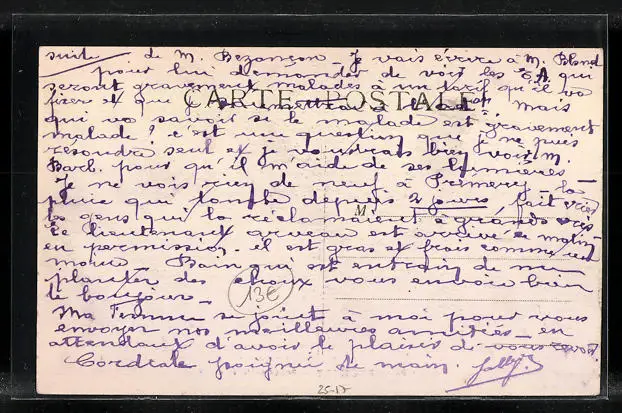 suite de M. Bezançon - Je vais écrire à M. Blond
pour lui demander de voir les qui
seront gravement malades à un tarif qu'il
fixer et que je Mais
CARTE POSTALE
qui va savoir si le malade est gravement
malade ! c'est une question que je ne puis
résoudre seul et je voudrais bien voir M.
Barb. pour qu'il m'aide de ses lumières
Je ne vois rien de neuf à Prémery - la
pluie qui tombe depuis 2 jours, fait
les gens qui la réclamaient à grands cris
Le lieutenant est arrivé ce matin
en permission, il est gras et frais comme un
moine. Bain qui est entrain de me
planter des choux vous envoie bien
le bonjour -
13€
Ma Femme se joint à moi pour vous
envoyer nos meilleures amitiés - en
attendant d'avoir le plaisir de vous revoir
Cordiale poignée de main.
25-17